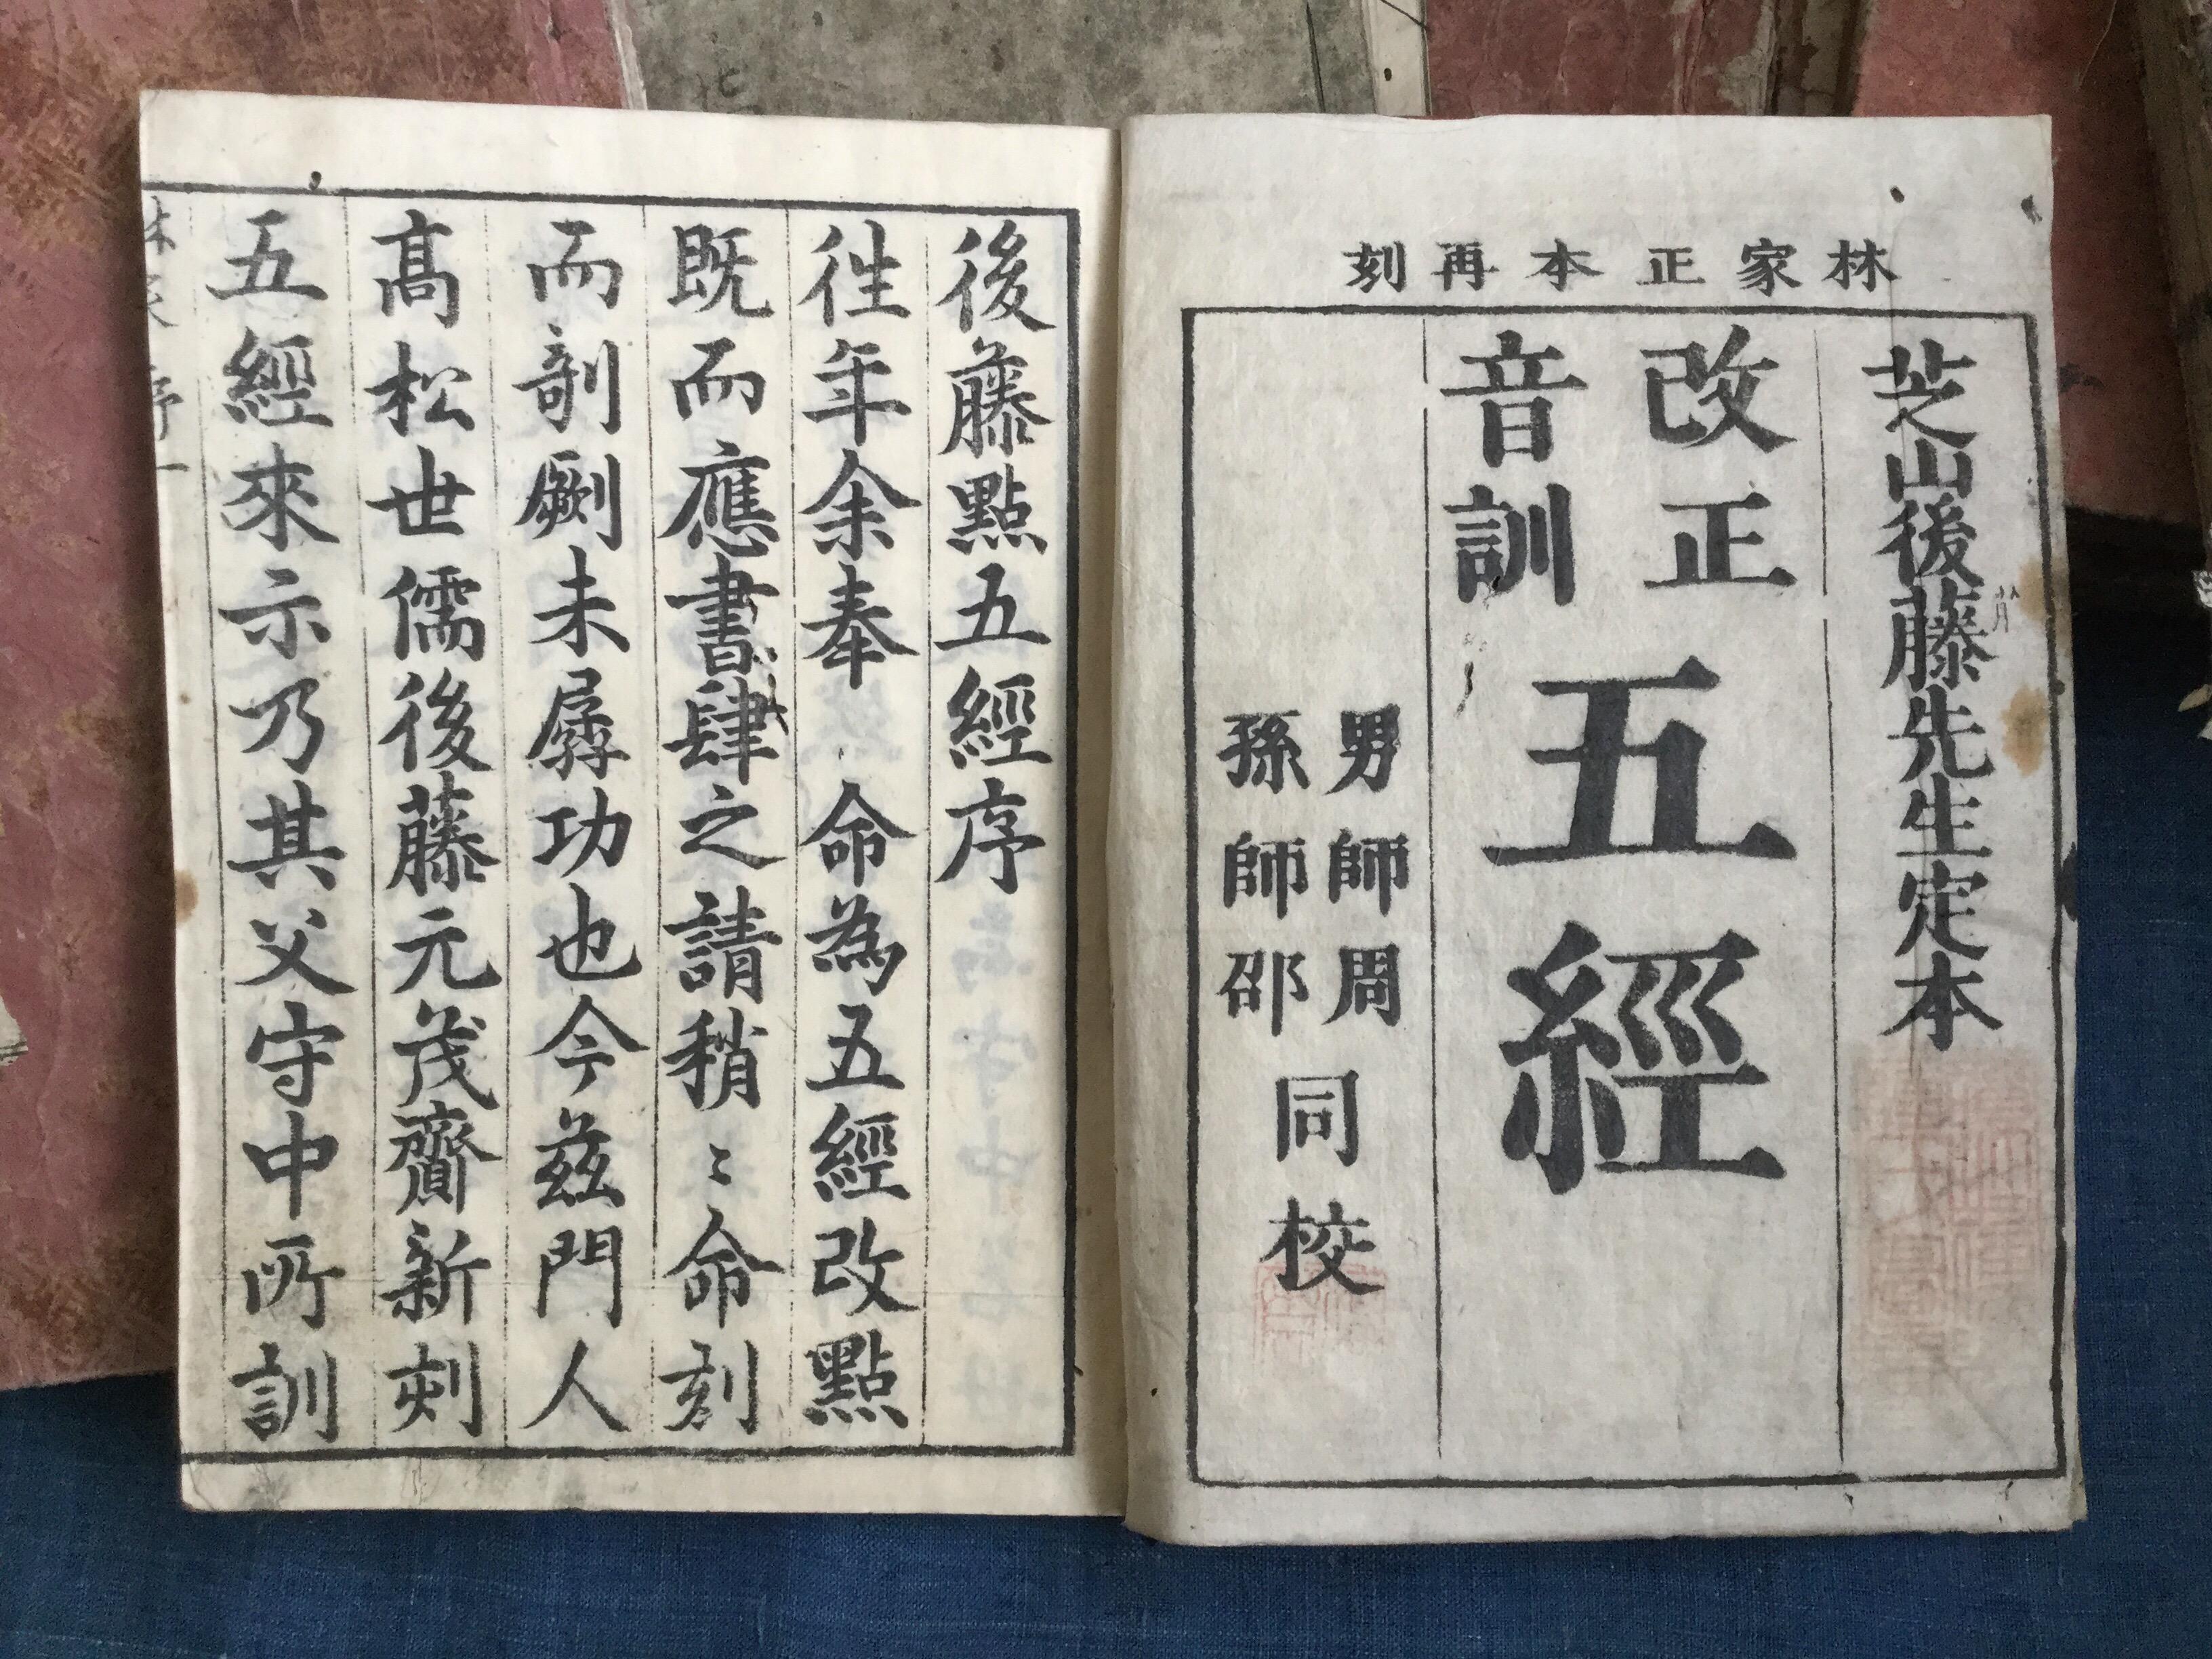 林家正本再刻
芝山後藤先生定本
改正
音訓
五經
男師周
孫師邵
同校
後藤點五經序
徃年余奉　命為五經改點
既而應書肆之請稍〻命刻
而剞劂未孱功也今茲門人
髙松世儒後藤元茂齎新刻
五經來示乃其父守中所訓